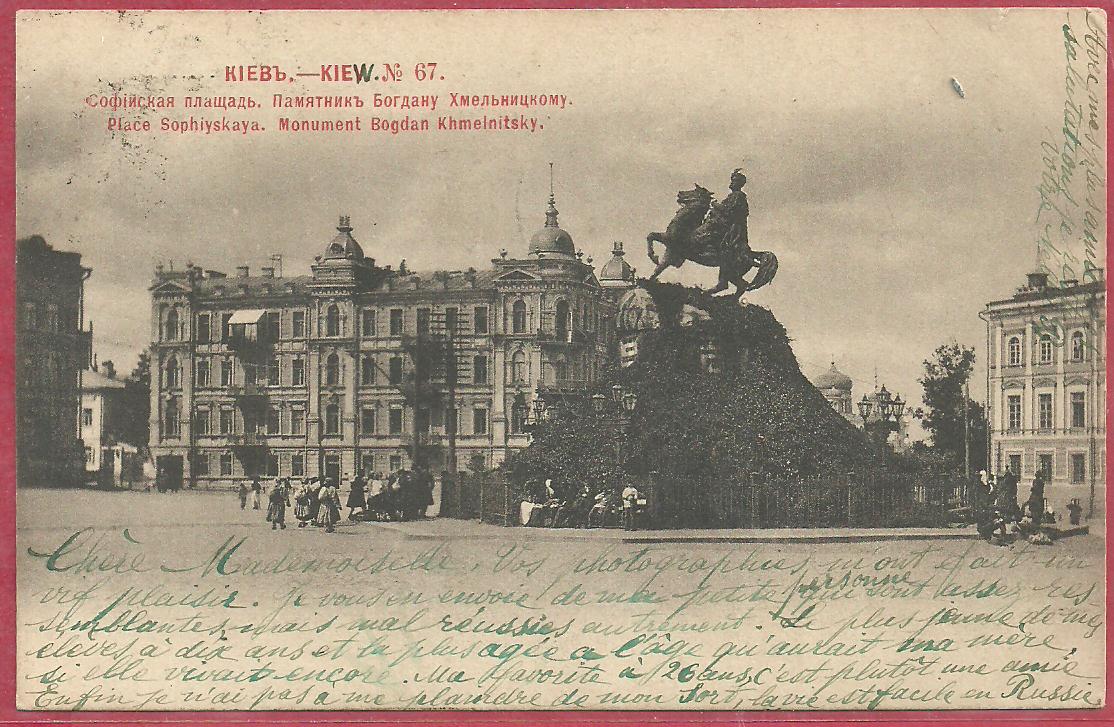 КІЕВЪ.—KIEW. № 67.
Софійская площадь. Памятникъ Богдану Хмельницкому.
Place Sophiyskaya. Monument Bogdan Khmelnitsky.
Chère Mademoiselle. Vos photographies m'ont fait un
vif plaisir. Je vous en envoie de ma petite personne qui sont assez res
semblantes, mais mal réussies autrement. Le plus jeune de mes
élèves à dix ans et la plus agée a l'âge qu'aurait ma mère,
si elle vivait encore. Ma favorite à 26 ans, c'est plutôt une amie
Enfin je n'ai pas à me plaindre de mon sort, la vie est facile en Russie.
Avec mes
salutations je
votre